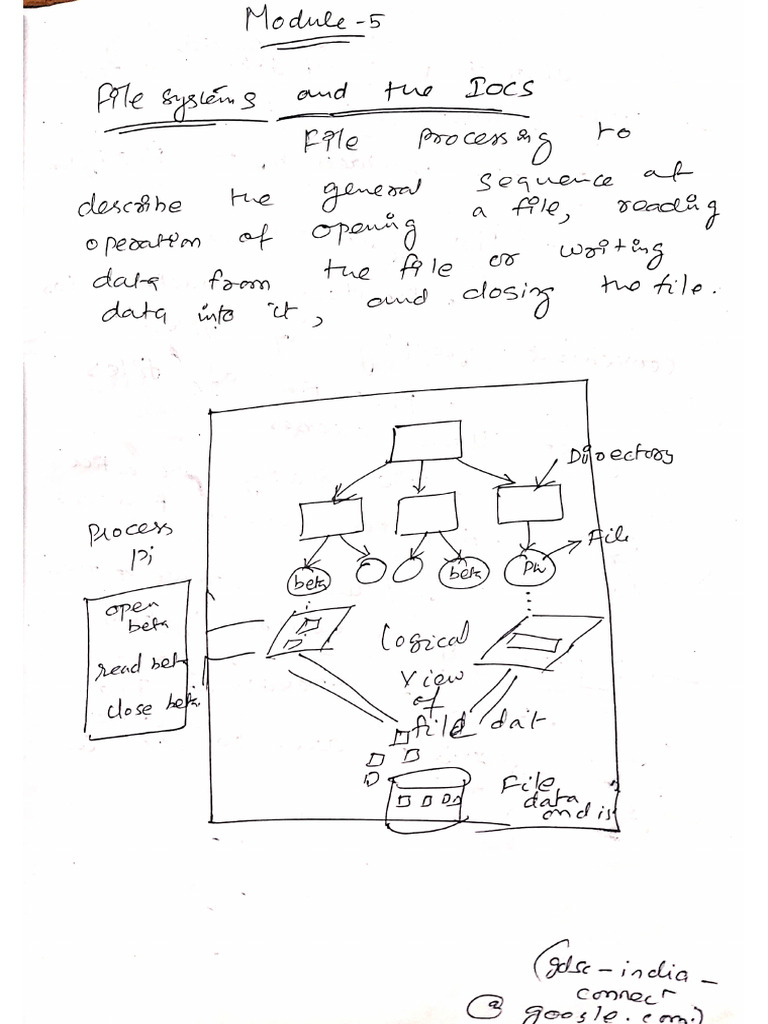 Module-5
File systems and the IOCS
File processing to
describe the general sequence of
operation of opening a file, reading
data from the file or writing
data into it, and closing the file.
Directory
Process
Pi
File
beta
beta
open
beta
read beta
close beta
Logical
view
of
file dat
File
data
on dis
(gdsc-india-
connect
@ google.com)